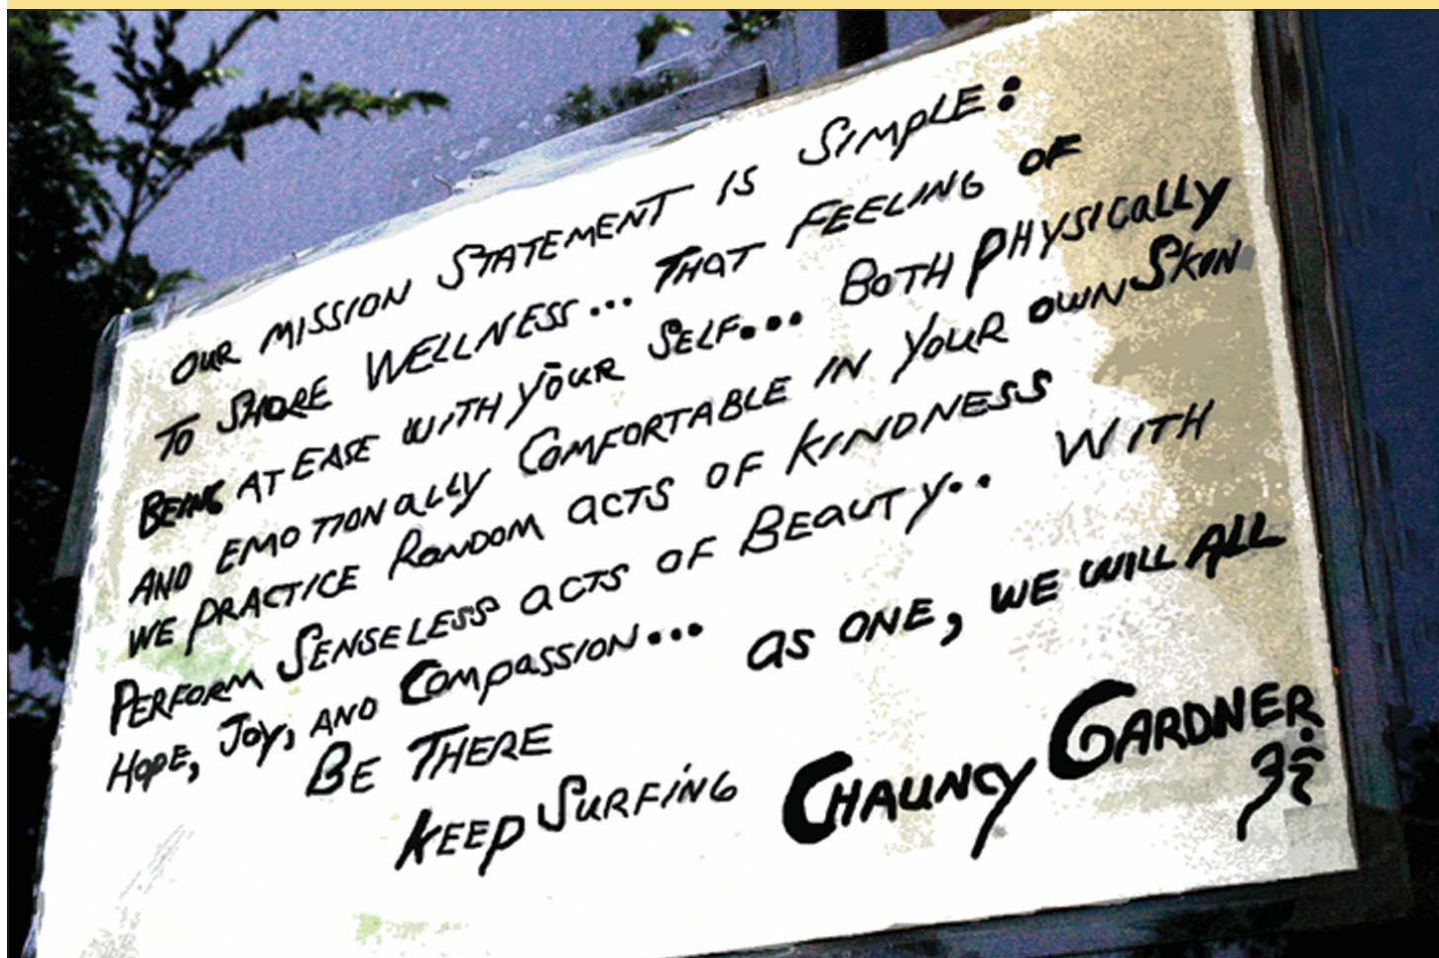 OUR MISSION STATEMENT IS SIMPLE:
TO SHARE WELLNESS... THAT FEELING OF
BEING AT EASE WITH YOUR SELF... BOTH PHYSICALLY
AND EMOTIONALLY COMFORTABLE IN YOUR OWN SKIN
WE PRACTICE RANDOM ACTS OF KINDNESS
PERFORM SENSELESS ACTS OF BEAUTY.. WITH
HOPE, JOY, AND COMPASSION... AS ONE, WE WILL ALL
BE THERE
KEEP SURFING CHAUNCY GARDNER